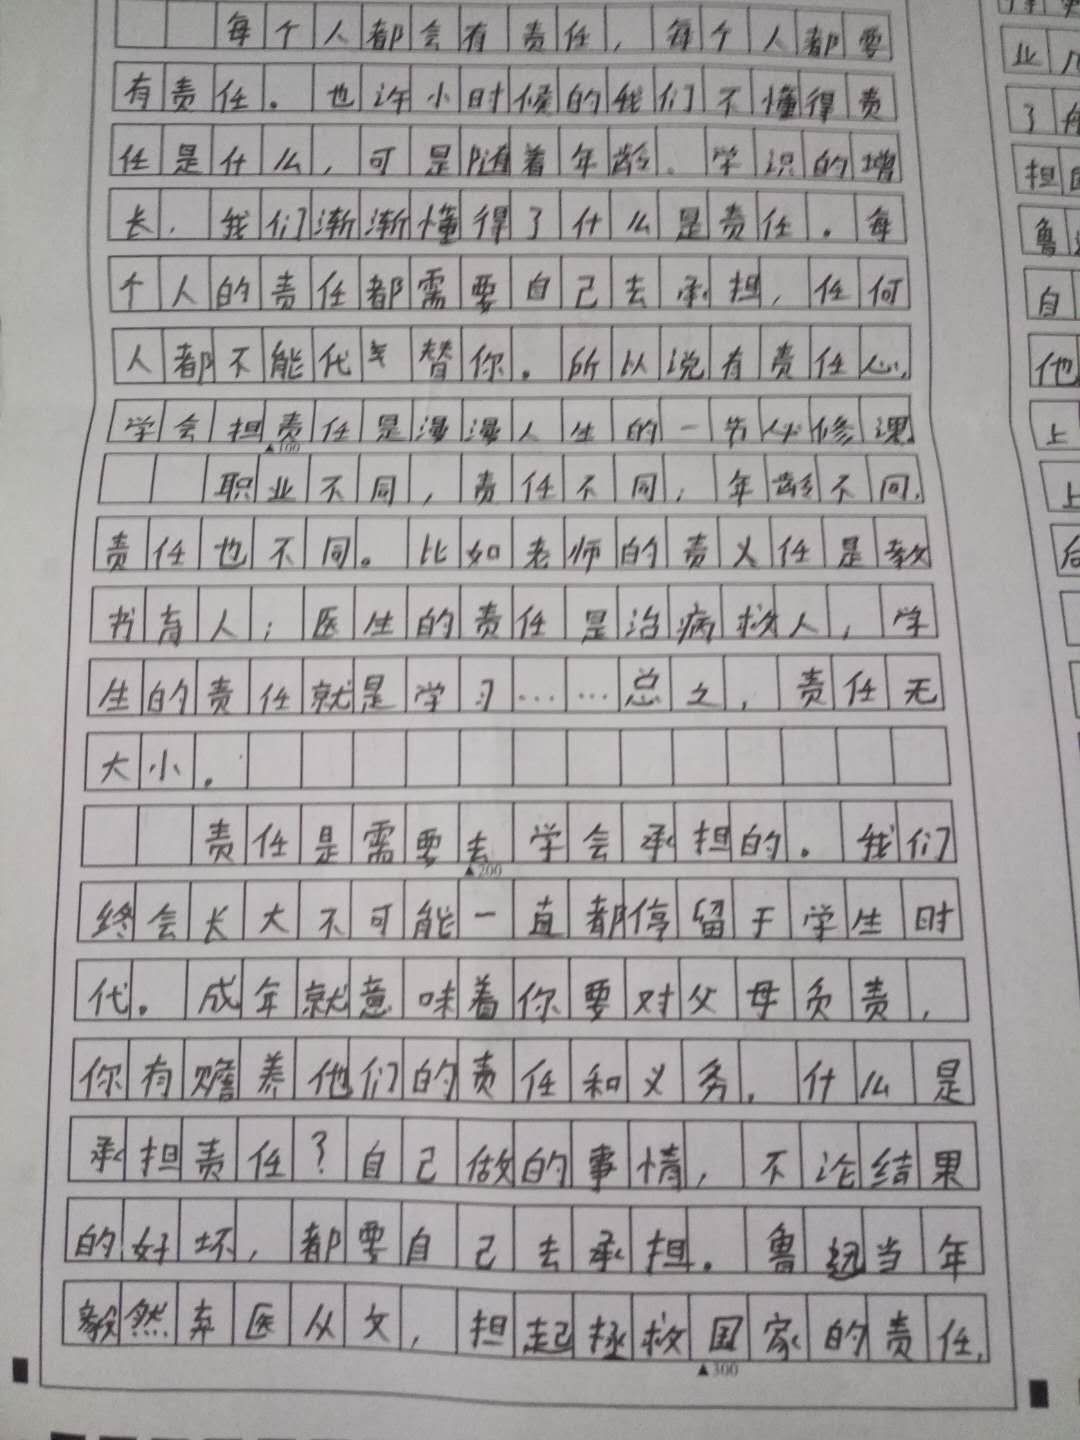 每个人都会有责任，每个人都要
有责任。也许小时候的我们不懂得责
任是什么，可是随着年龄。学识的增
长，我们渐渐懂得了什么是责任。每
个人的责任都需要自己去承担，任何
人都不能代替你。所以说有责任心，
学会担责任是漫漫人生的一节必修课
▲100
职业不同，责任不同；年龄不同，
责任也不同。比如老师的责义任是教
书育人；医生的责任是治病救人，学
生的责任就是学习……总之，责任无
大小。
责任是需要去学会承担的。我们
▲200
终会长大不可能一直都停留于学生时
代。成年就意味着你要对父母负责，
你有赡养他们的责任和义务。什么是
承担责任？自己做的事情，不论结果
的好坏，都要自己去承担。鲁迅当年
毅然弃医从文，担起拯救国家的责任，
▲300
业
了
担
鲁
自
他
上
上